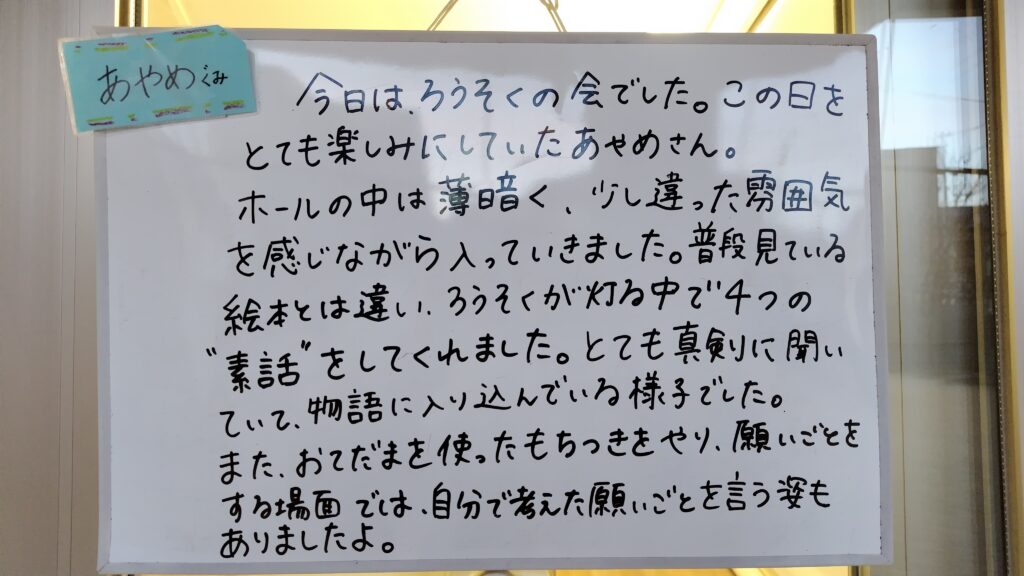 あやめぐみ
今日は、ろうそくの会でした。この日を
とても楽しみにしていたあやめさん。
ホールの中は薄暗く、少し違った雰囲気
を感じながら入っていきました。普段見ている
絵本とは違い、ろうそくが灯る中で4つの
"素話"をしてくれました。とても真剣に聞い
ていて、物語に入り込んでいる様子でした。
また、おてだまを使ったもちつきをやり、願いごとを
する場面では、自分で考えた願いごとを言う姿も
ありましたよ。